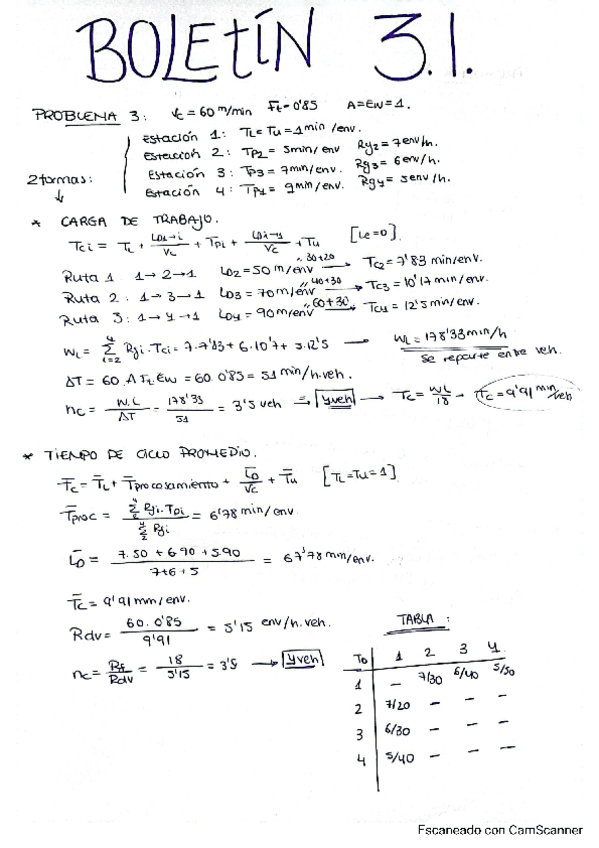 BOLETÍN 3.1.
PROBLEMA 3: Vc = 60 m/min Ft = 0'85 A = Ew = 1.
Estación 1: TL = Tu = 1 min /env.
Estación 2: Tp2 = 5min/env Rg2 = 7env/h.
Estación 3: Tp3 = 7min/env. Rg3 = 6env/h.
Estación 4: Tp4 = 9min/env. Rg4 = 5env/h.
2 formas:
* CARGA DE TRABAJO.
Tci = TL + LD1→i/VL + Tpi + LDi→1/Vc + Tu [Le=0].
Ruta 1: 1→2→1 LD2 = 50 m/env 30+20 → Tc2 = 7'83 min/env.
Ruta 2: 1→3→1 LD3 = 70m/env 40+30 → Tc3 = 10'17 min/env.
Ruta 3: 1→4→1 LD4 = 90m/env 60+30 → Tc4 = 12'5 min/env.
WL = Σ Rfi · Tci = 7·7'83 + 6·10'7 + 5·12'5 → WL = 178'33min/h
Se reparte entre veh.
AT = 60 · A Ft Ew = 60·0'85 = 51 min/h.veh.
nc = W.L/AT = 178'33/51 = 3'5 veh → 4veh → Tc = WL/18 → Tc = 9'91 min/veh
* TIEMPO DE CICLO PROMEDIO.
Tc = TL + Tprocosamiento + LD/Vc + Tu [TL=Tu=1]
Tproc = Σ Rfi·Tpi / Σ Rfi = 6'78 min/env
LD = 7·50 + 6·90 + 5·90 / 7+6+5 = 67'78 mm/env.
Tc = 9'91 mm/env.
Rdv = 60·0'85 / 9'91 = 5'15 env/h.veh.
nc = Rf/Rdv = 18/5'15 = 3'5 → 4veh
TABLA:
To 1 2 3 4
1 – 7/30 6/40 5/50
2 7/20 – – –
3 6/30 – – –
4 5/40 – – –
Escaneado con CamScanner